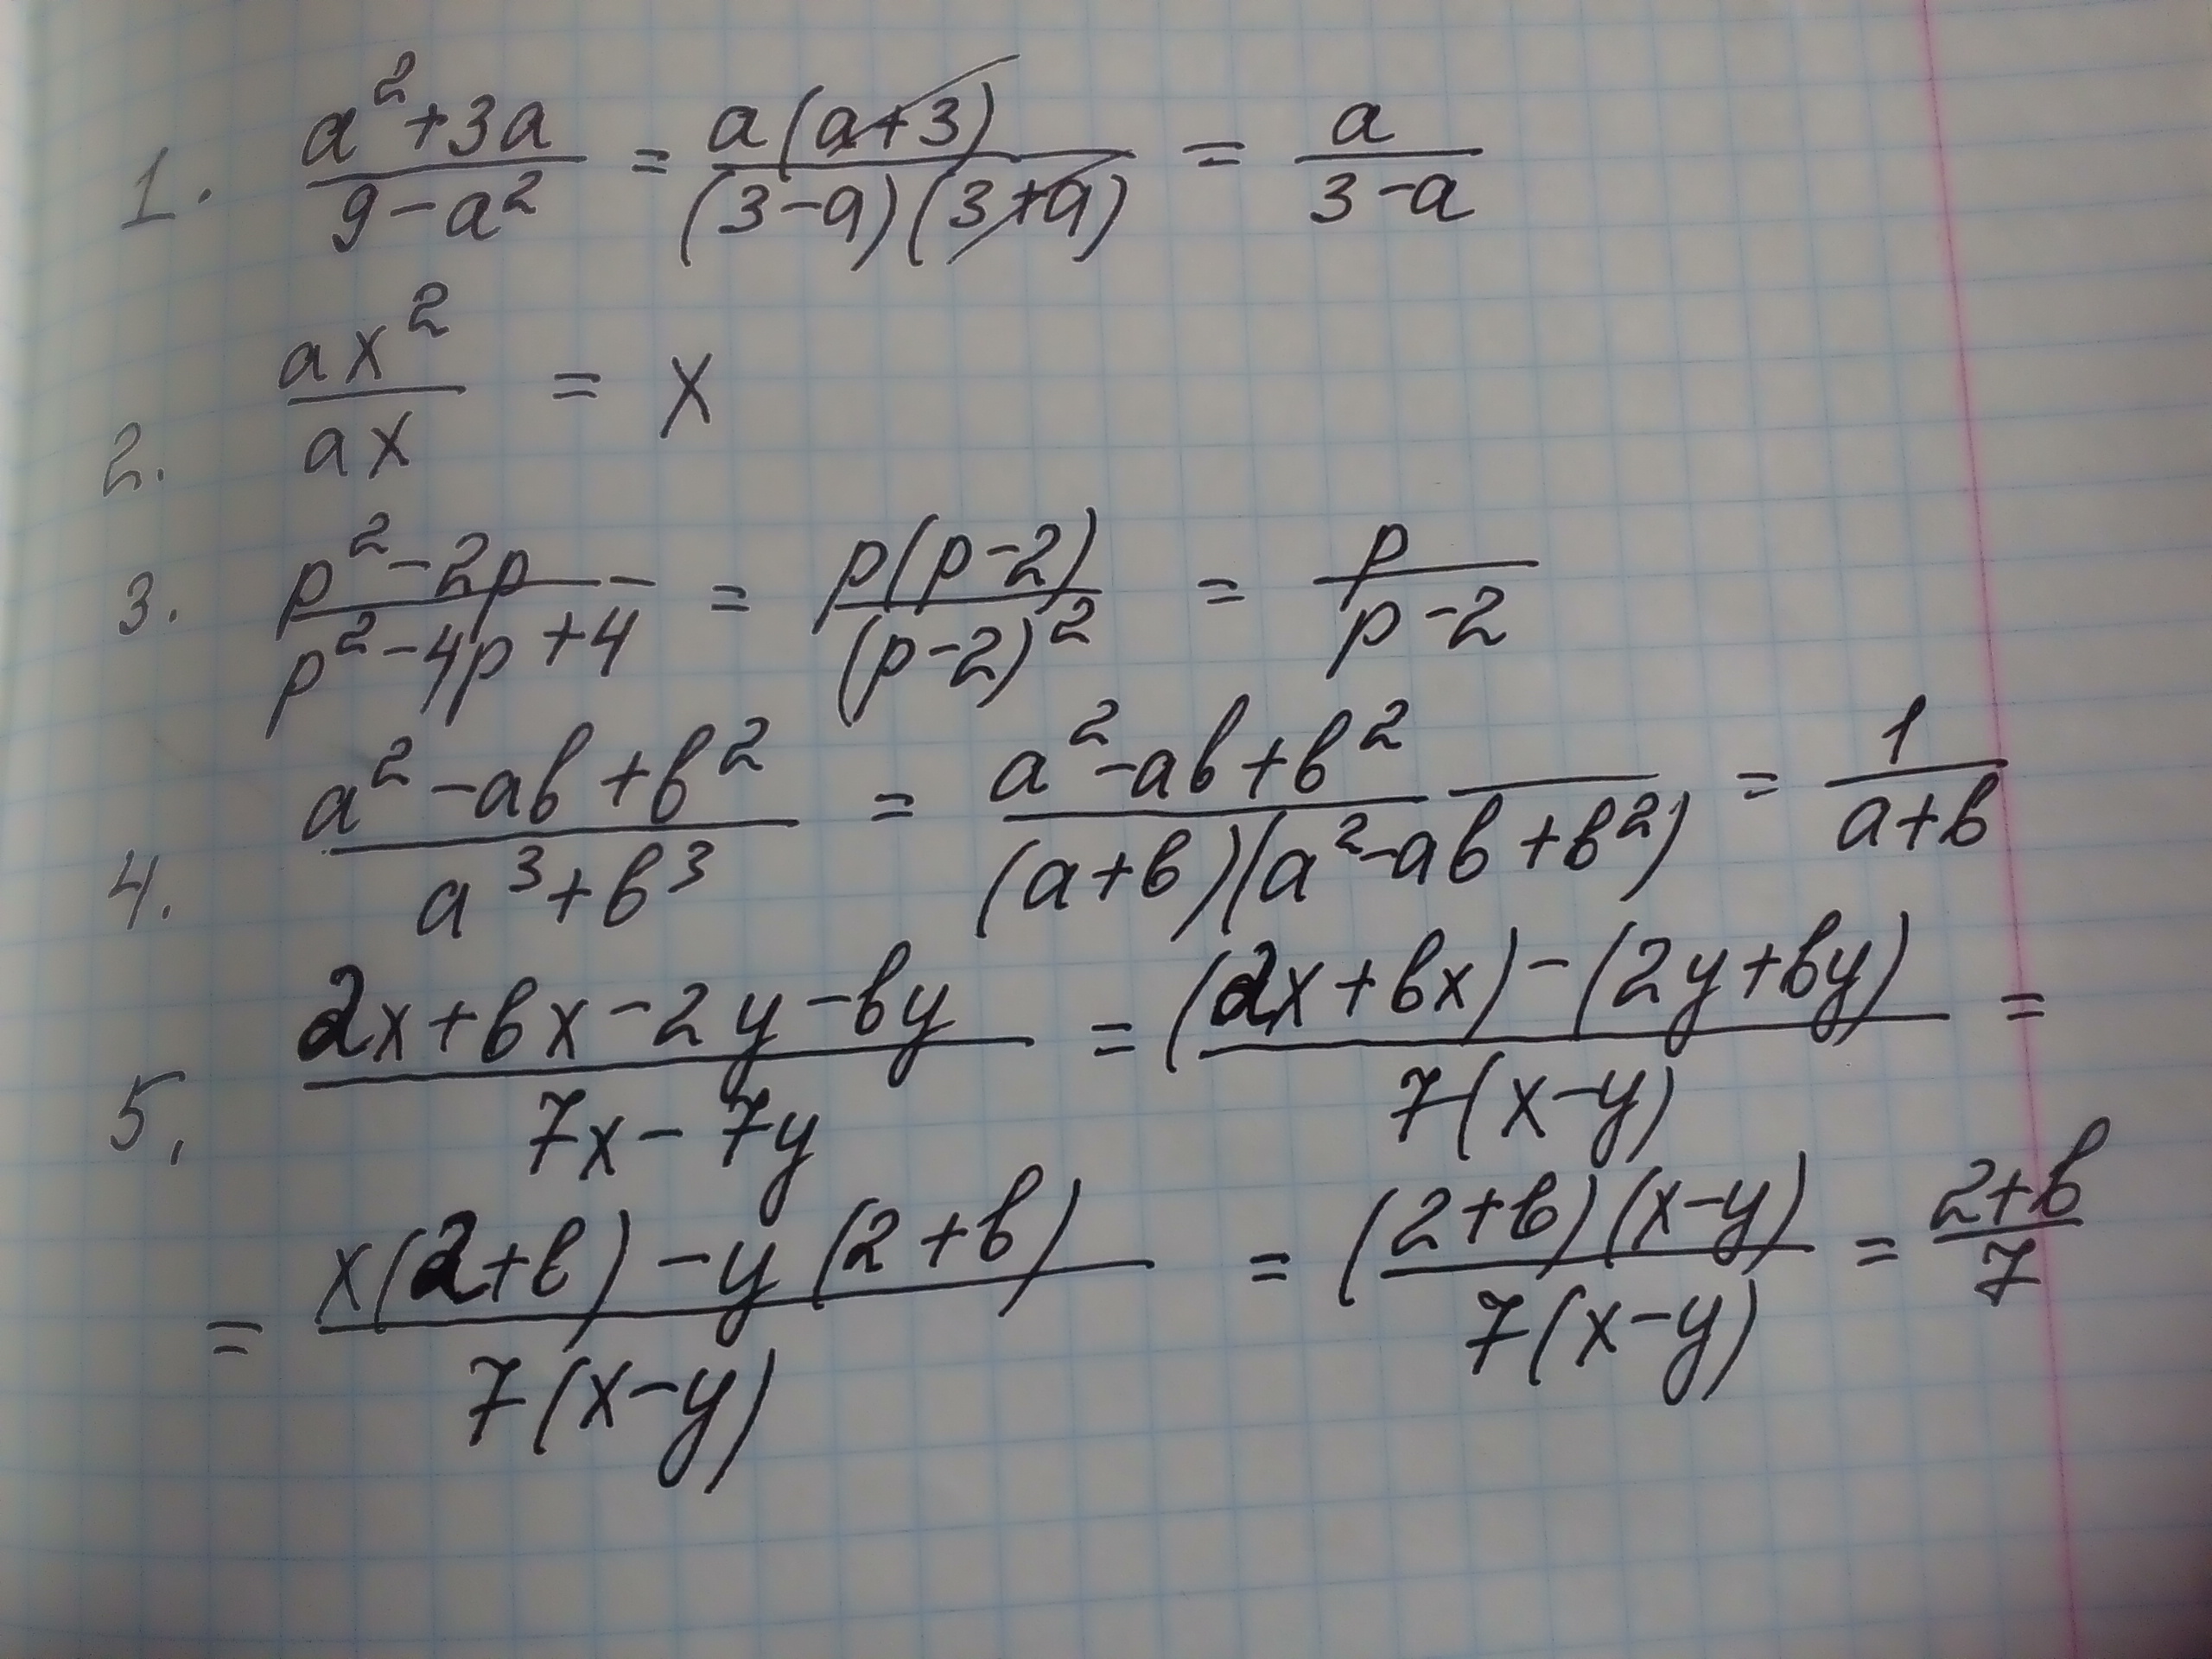 1. (a²+3a)/(9-a²) = a(a+3)/((3-a)(3+a)) = a/(3-a)
2. ax²/(ax) = x
3. (p²-2p)/(p²-4p+4) = p(p-2)/(p-2)² = p/(p-2)
4. (a²-ab+b²)/(a³+b³) = (a²-ab+b²)/((a+b)(a²-ab+b²)) = 1/(a+b)
5. (2x+bx-2y-by)/(7x-7y) = ((2x+bx)-(2y+by))/(7(x-y)) =
= (x(2+b)-y(2+b))/(7(x-y)) = ((2+b)(x-y))/(7(x-y)) = (2+b)/7